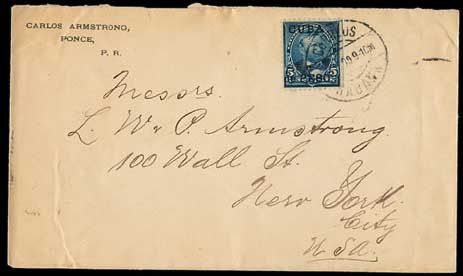 CARLOS ARMSTRONG,
PONCE,
P. R.
CUBA
5
PESO
Messrs.
L. W. & P. Armstrong.
100 Wall St.
New York
City
U.S.A.